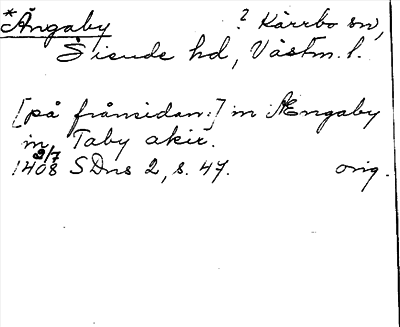 *Ängaby ? Kärrbo sn,
Siende hd, Västm. l.
[på frånsidan:] in Ængaby
in Taby akir.
9/7
1408 SDns 2, s. 47. orig.